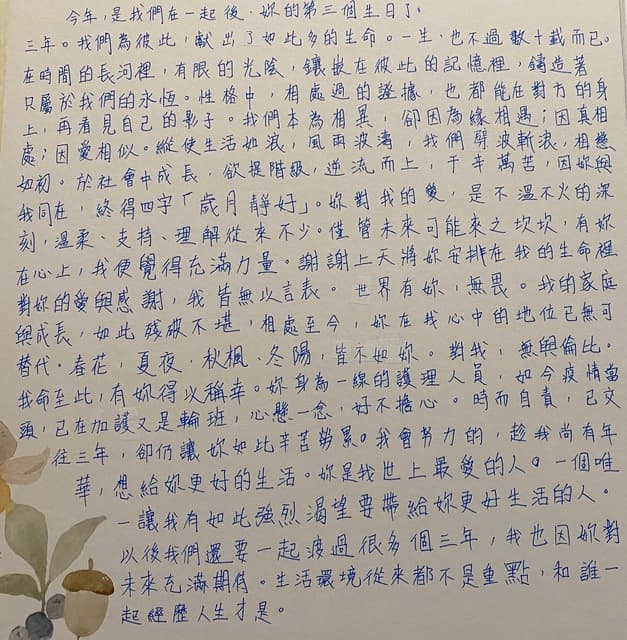 今年，是我們在一起後，妳的第三個生日了。
三年。我們為彼此，獻出了如此多的生命。一生，也不過數十載而已。
在時間的長河裡，有限的光陰，鑲嵌在彼此的記憶裡，鑄造著
只屬於我們的永恆。性格中，相處過的證據，也都能在對方的身
上，再看見自己的影子。我們本為相異，卻因為緣相遇；因真相
處；因愛相似。縱使生活如浪，風雨波濤，我們劈波斬浪，相戀
如初。於社會中成長，欲提階級，逆流而上，千辛萬苦，因妳與
我同在，終得四字「歲月靜好」。妳對我的愛，是不溫不火的深
刻，溫柔、支持、理解從來不少。僅管未來可能來之坎坎，有妳
在心上，我便覺得充滿力量。謝謝上天將妳安排在我的生命裡
對妳的愛與感謝，我皆無以言表。世界有妳，無畏。我的家庭
與成長，如此殘破不堪，相處至今，妳在我心中的地位已無可
替代。春花，夏夜，秋楓，冬陽，皆不如妳。對我，無與倫比。
我命至此，有妳得以稱幸。妳身為一線的護理人員，如今疫情當
頭，已在加護又是輪班，心懸一念，好不擔心。時而自責，已交
往三年，卻仍讓妳如此辛苦勞累。我會努力的，趁我尚有年
華，想給妳更好的生活。妳是我世上最愛的人。一個唯
一讓我有如此強烈渴望要帶給妳更好生活的人。
以後我們還要一起渡過很多個三年，我也因妳對
未來充滿期待。生活環境從來都不是重點，和誰一
起經歷人生才是。